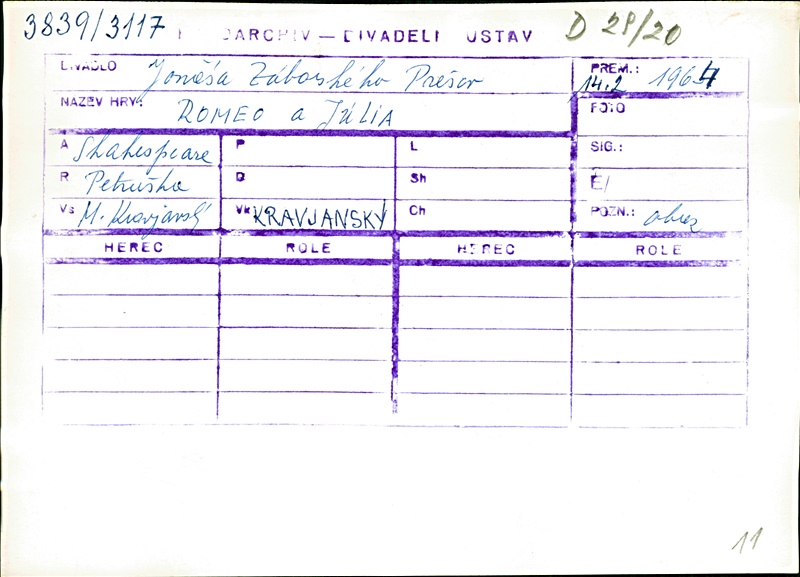 3839/3117 DARCHIV — DIVADELI USTAV D 28/20
DIVADLO Jonáša Záborského Prešov PREM.: 14.2 1964
NÁZEV HRY: ROMEO a JÚLIA FOTO
A Shakespeare P L SIG.:
R Petruška D Sh Č/
Vs M. Kravjanský Vk KRAVJANSKÝ Ch POZN.: obraz
HEREC ROLE HEREC ROLE
11